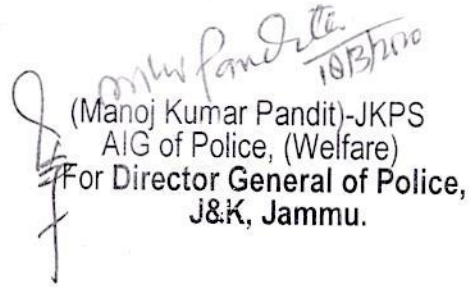 18/3/2020
(Manoj Kumar Pandit)-JKPS
AIG of Police, (Welfare)
For Director General of Police,
J&K, Jammu.